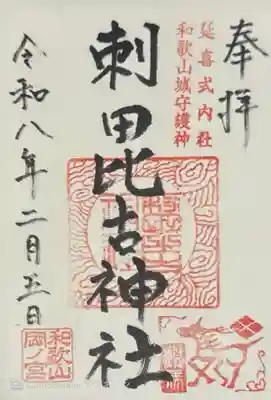 奉拝
延喜式内社
和歌山城守護神
刺田比古神社
令和八年二月五日
和歌山
岡ノ宮